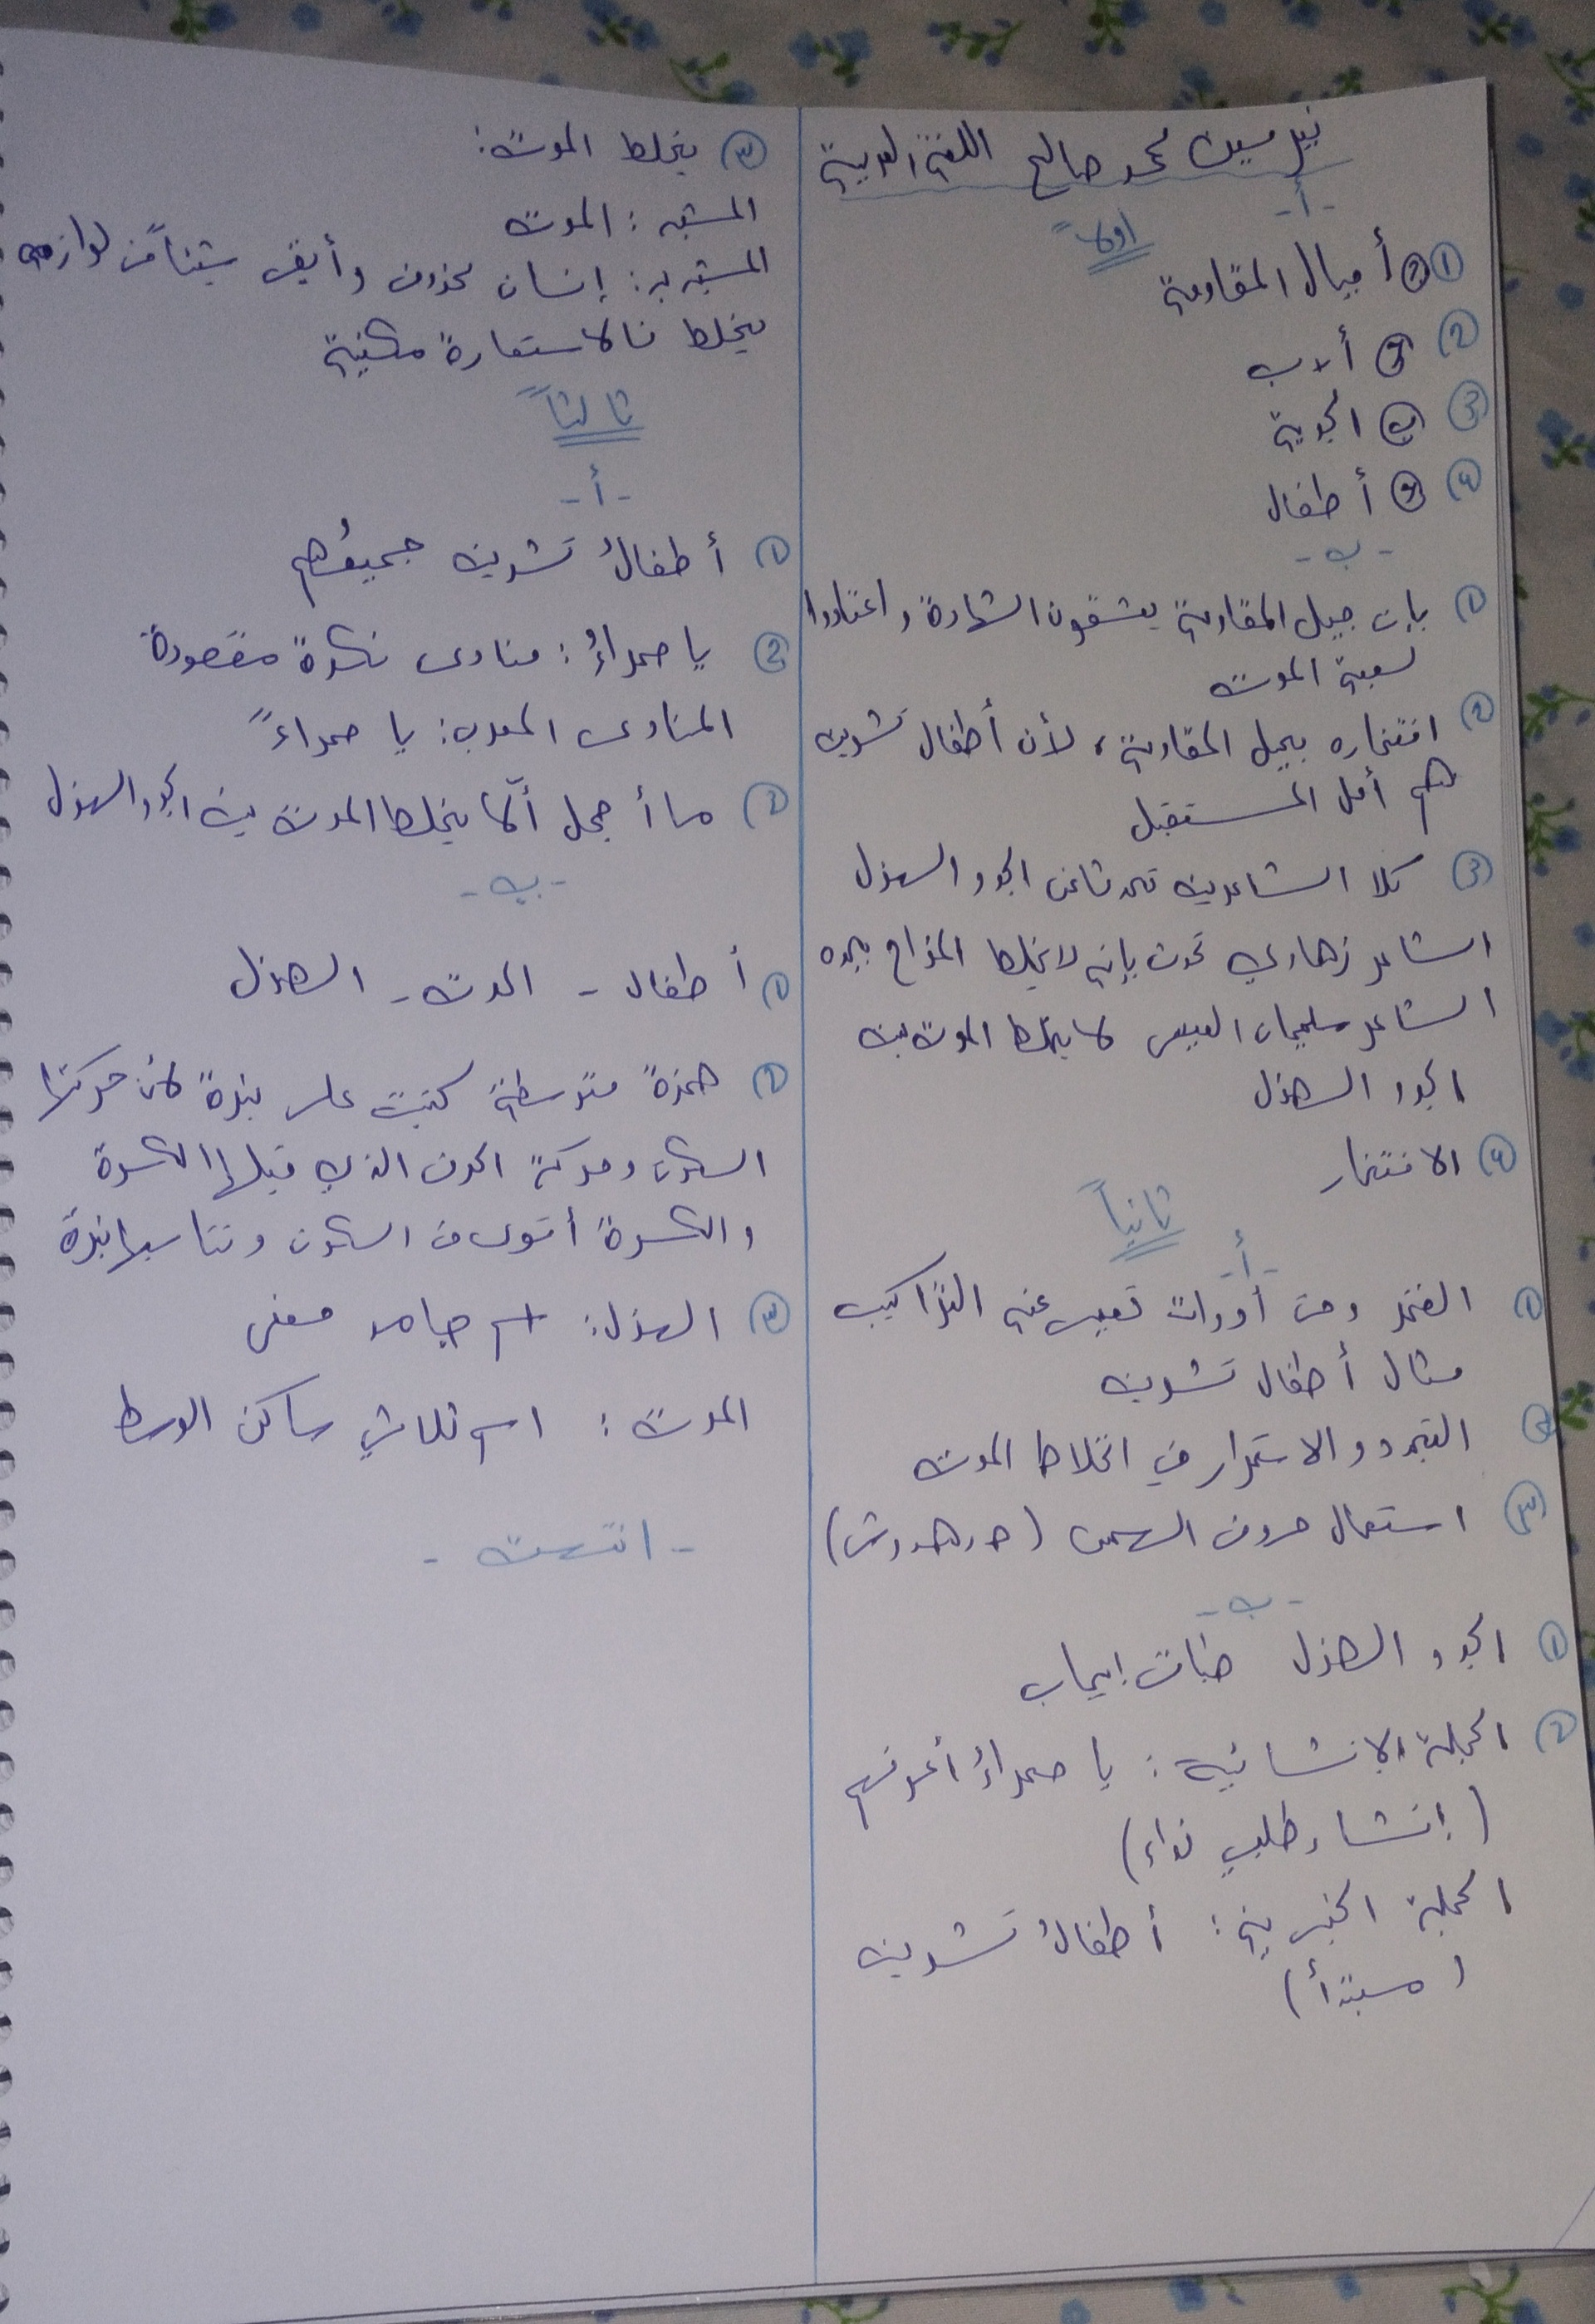 محمد صالح اللغة العربية
- أ -
أولاً
① أجيال المقاومة
② أدب
③ ب الحرية
④ أطفال
- ب -
① بإن جيل المقاومة يعشقون الشهادة واعتادوا
لعبة الموت
② افتخاره بجيل المقاومة، لأن أطفال تشرين
هم أمل المستقبل
③ كلا الشاعرين تحدثا عن الجد والهزل
الشاعر زهاوي تحدث بإنه لا يخلط المزاح بجده
الشاعر سليمان العيسى كما يخلط الموت بين
الجد والهزل
④ الافتخار
ثانياً
- أ -
① الفخر ومن أدوات تعبير عنه التراكيب
مثال أطفال تشرين
② التجدد والاستمرار في اختلاط الموت
③ استعمال حروف الهمس
- ب -
① الجد والهزل طباق إيجاب
② الجملة الإنشائية: يا صحراءُ أعرفهم
(إنشاء طلبي نداء)
الجملة الخبرية: أطفالُ تشرين
(مبتدأ)
③ يخلط الموت:
المشبه: الموت
المشبه به: إنسان محذوف وأبقى شيئاً من لوازمه
يخلط فالاستعارة مكنية
ثالثاً
- أ -
① أطفالُ تشرين جميعُهم
② يا صحراءُ: منادى نكرة مقصودة
المنادى المعرب: يا صحراءً
③ ما أجمل أنّما يخلط الموت بين الجد والهزل
- ب -
① أطفال - الموت - الهزل
② همزة متوسطة كتبت على نبرة لأن حركتها
السكون وحركة الحرف الذي قبلها الكسرة
والكسرة أقوى من السكون وتناسبها نبرة
③ الهزل: اسم جامد معنى
الموت: اسم ثلاثي ساكن الوسط
- انتهت -